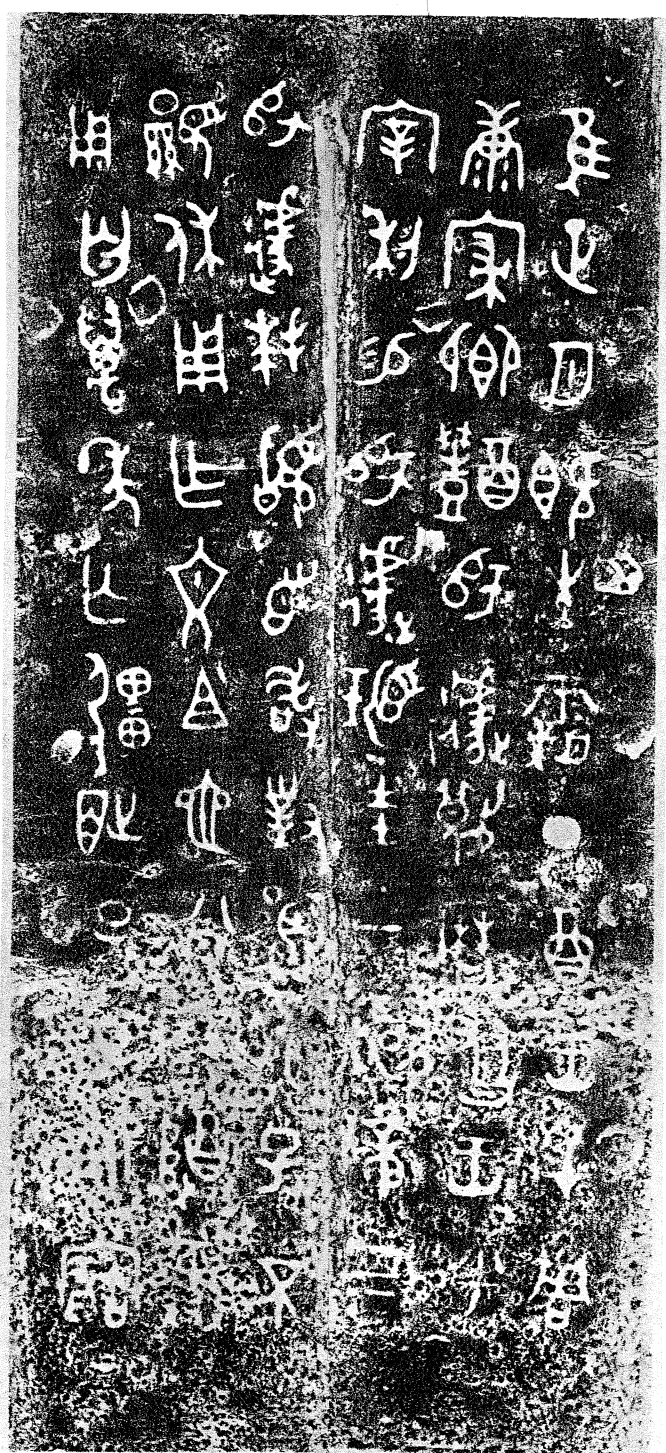 隹正月既生霸丁酉王才周
康寢鄉醴師遽蔑曆𠭯王王乎
宰利易師遽瑁圭一環章四
師遽拜稽首敢對揚天子不
顯休用乍文且它公寶尊彝
用匄萬年亡疆百世孫子永寶